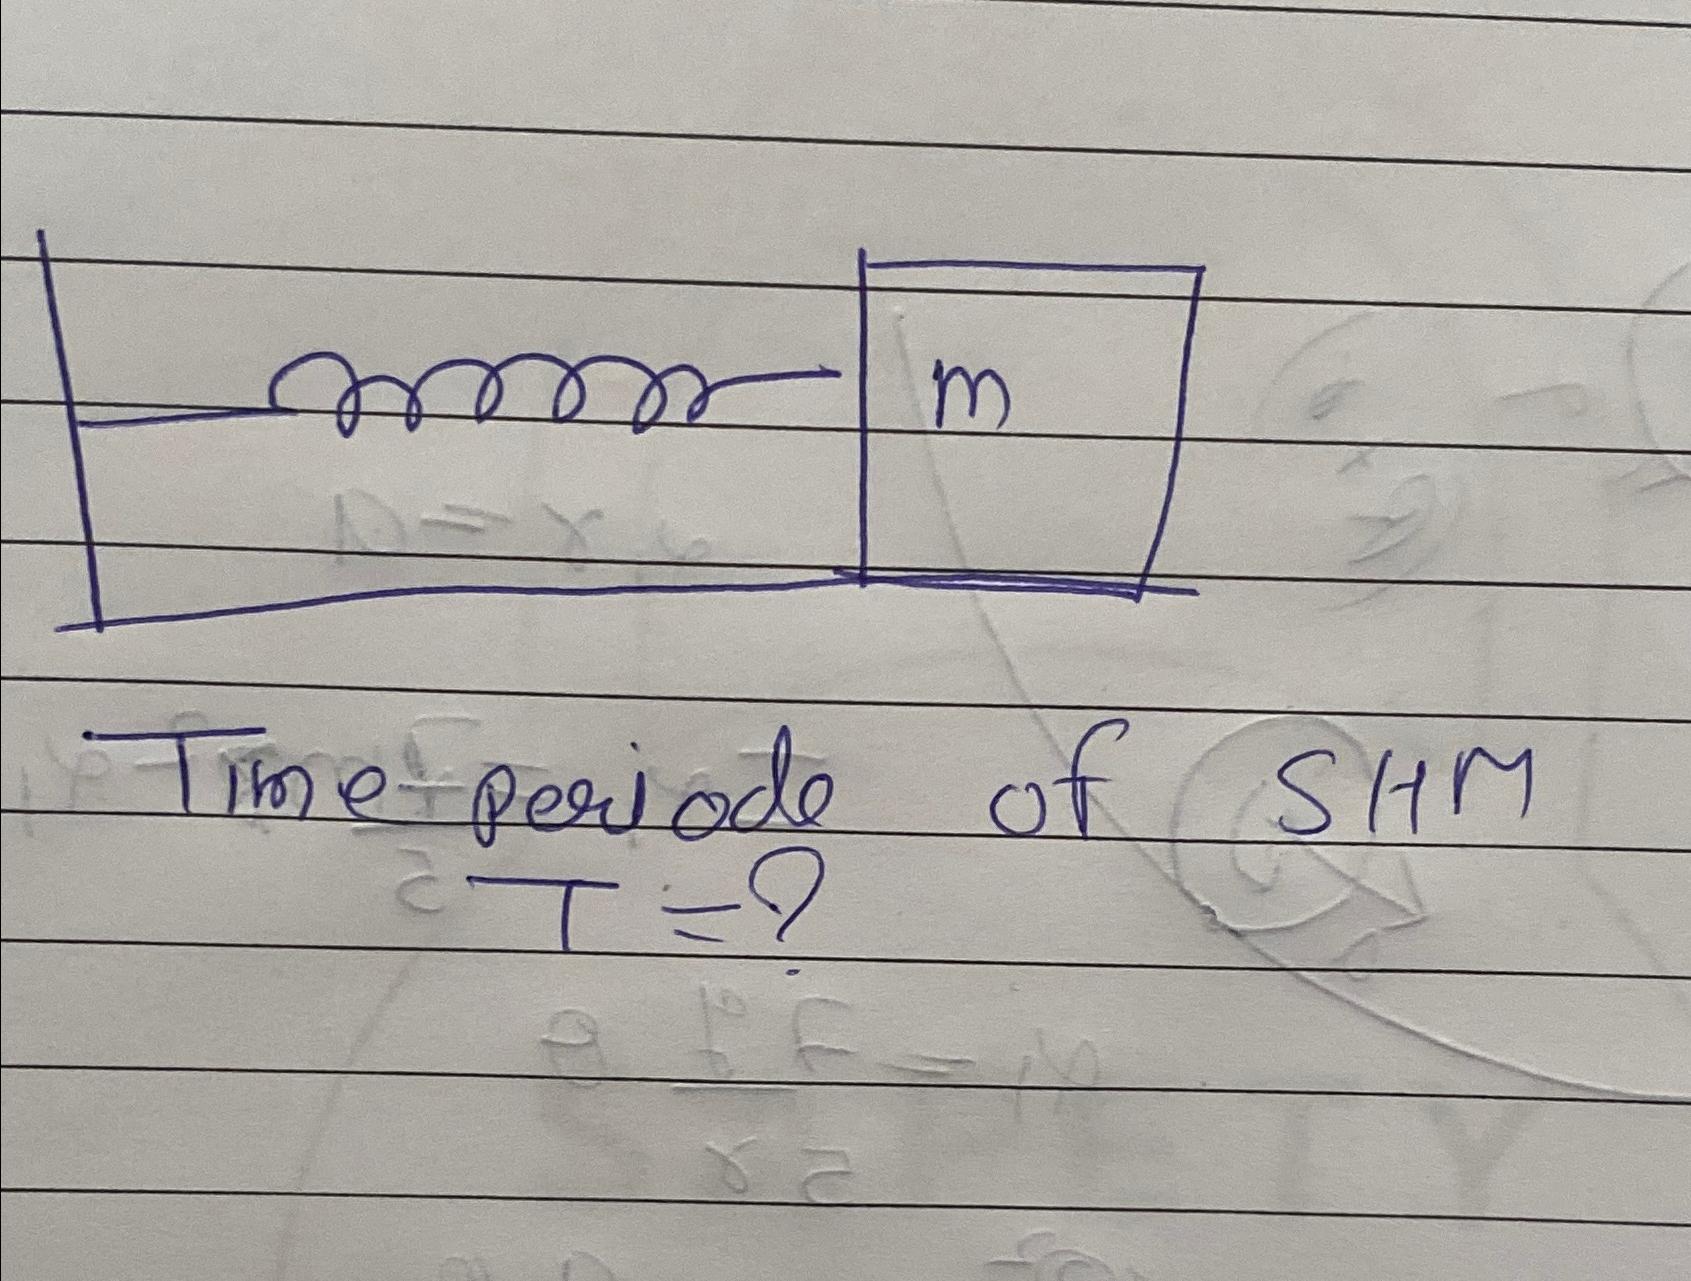 m
Time periode of SHM
T = ?